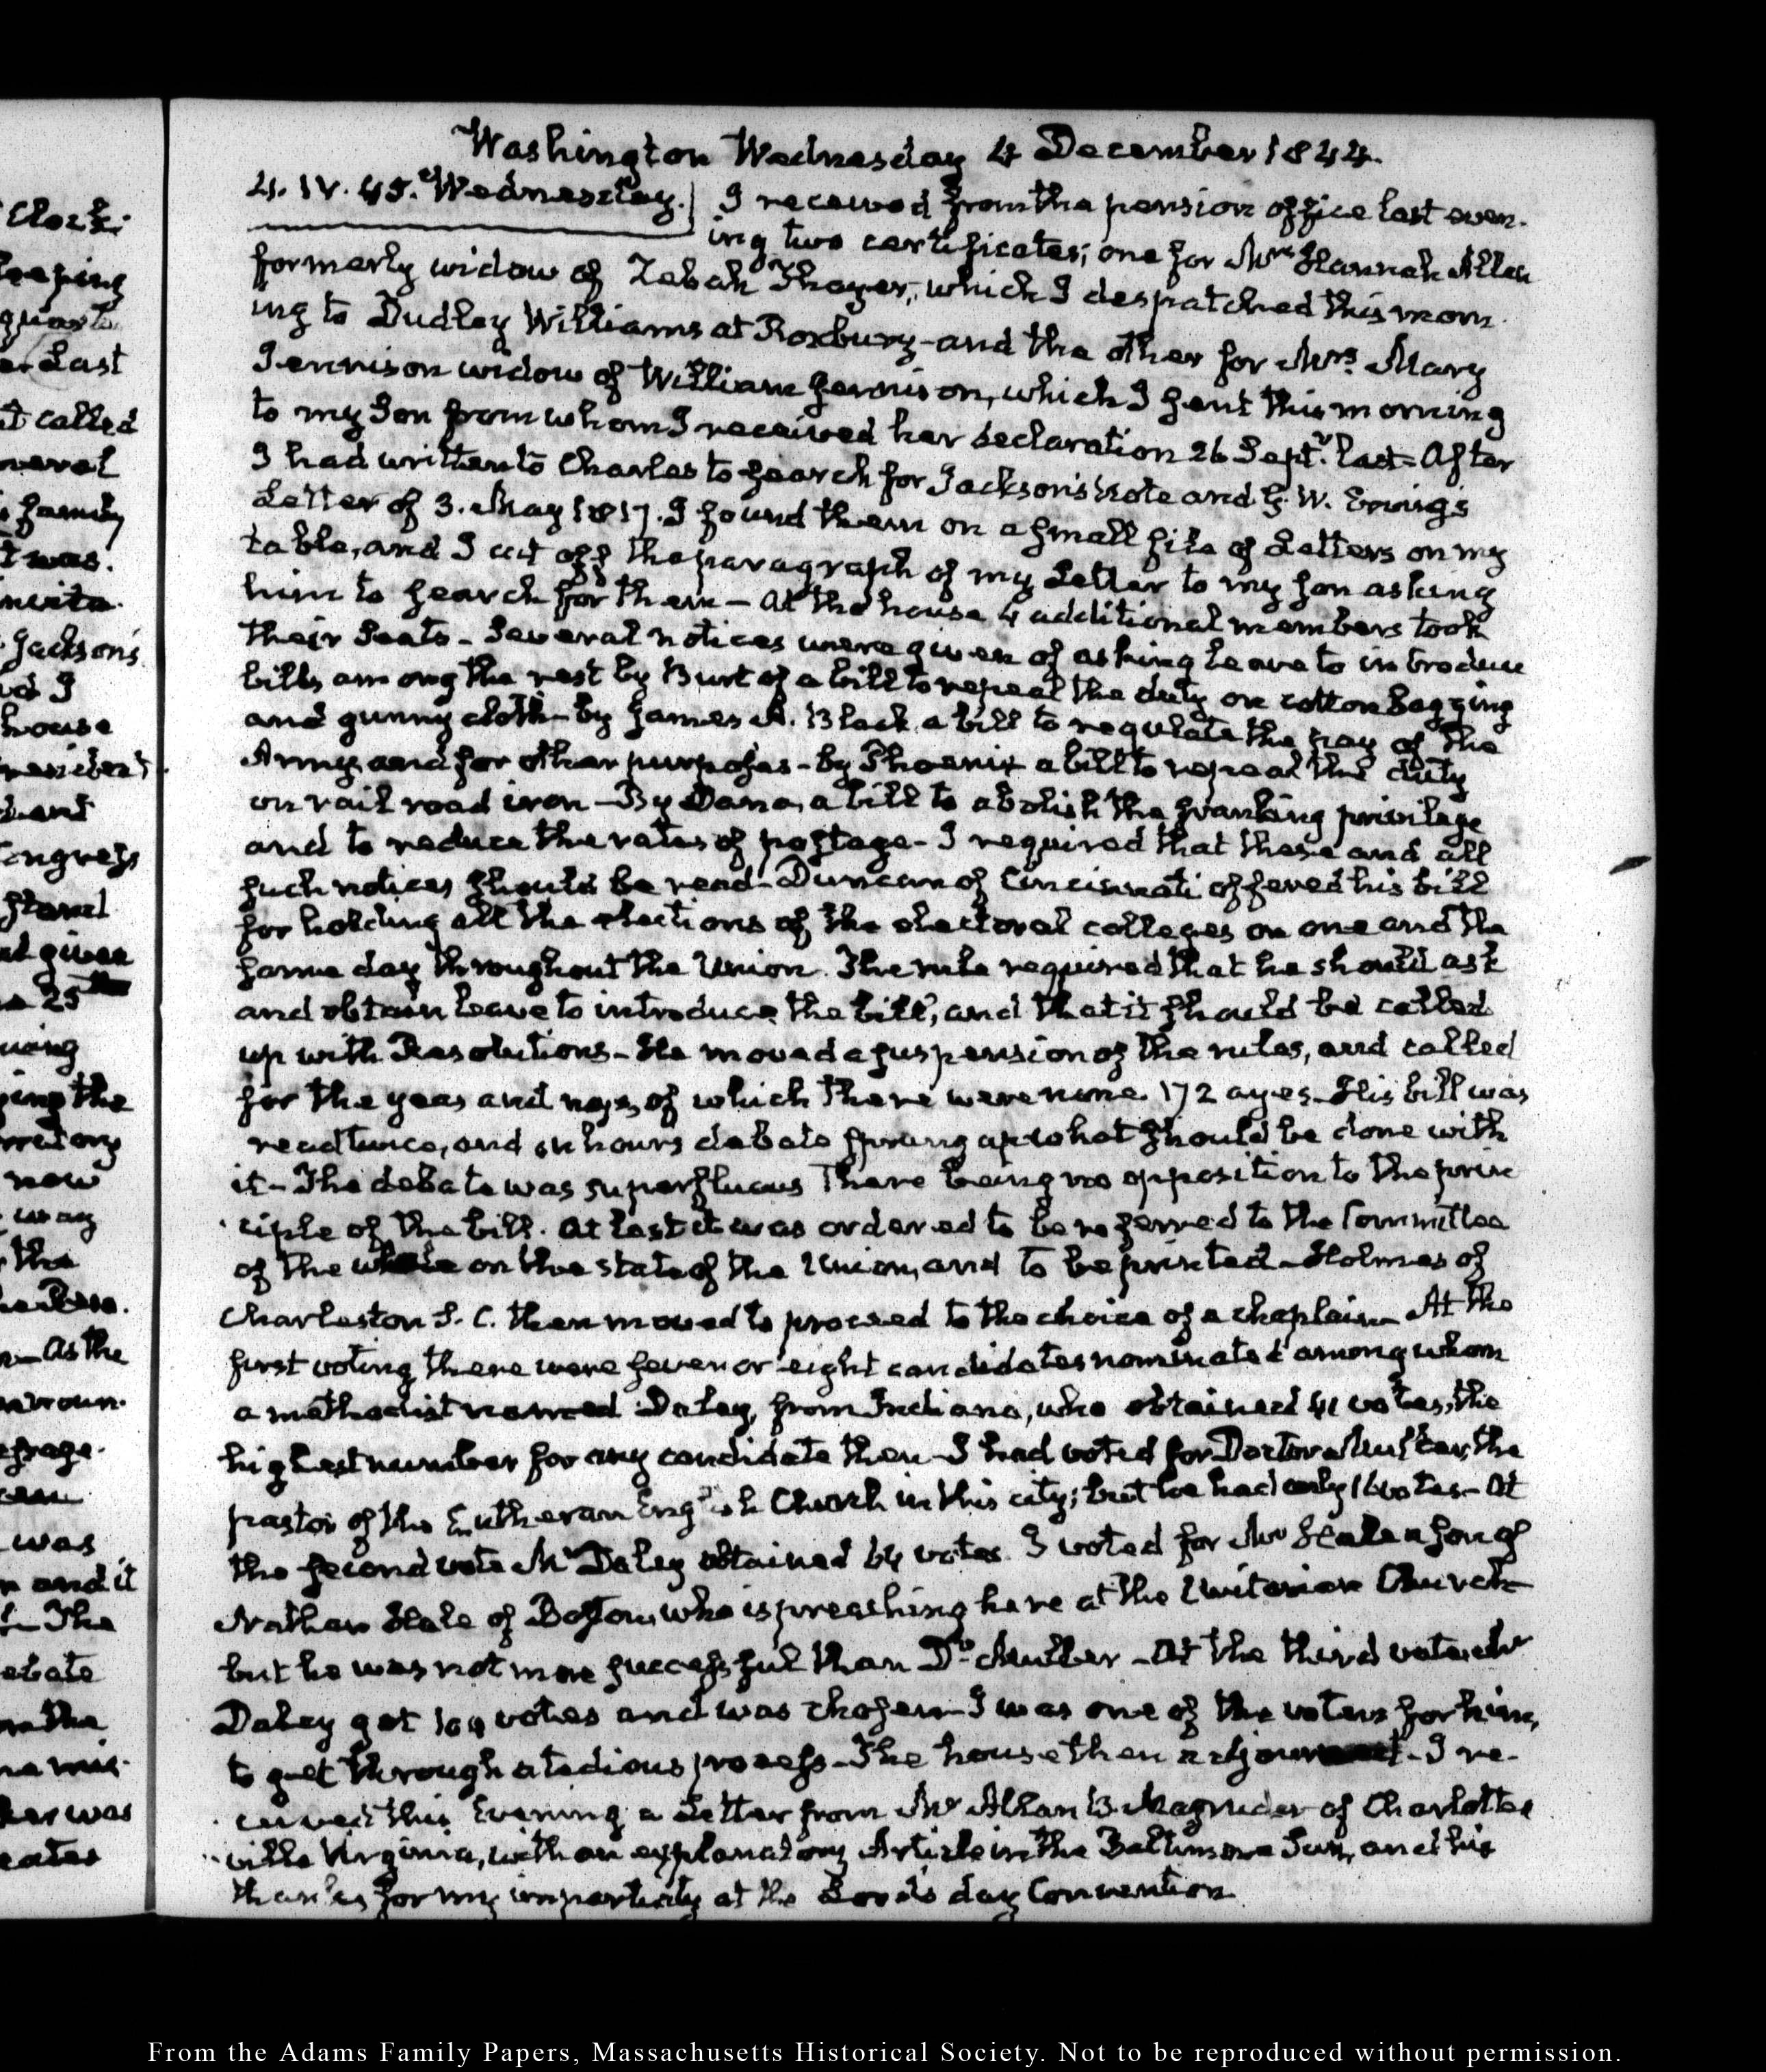 Clock;
keeping
quest
Last
called
neral
family
t was.
invita-
Jackson's
house
President
Congress
given
25th
uing
ing the
now
way
the
As the
was
and it
The
debate
the
ker was
Washington Wednesday 4 December 1844.
4. IV. 45. Wednesday. I received from the pension office last even-
ing two certificates; one for Mrs Hannah Allen
formerly widow of Zebah Thayer, which I despatched this morn-
ing to Dudley Williams at Roxbury—and the other for Mrs. Mary
Jennison widow of William Jennison, which I sent this morning
to my Son from whom I received her declaration 26 Septr. last—After
I had written to Charles to search for Jackson's Note and G. W. Erving's
Letter of 3. May 1817. I found them on a small file of Letters on my
table, and I cut off the paragraph of my Letter to my son asking
him to search for them—At the house 4 additional members took
their Seats—Several notices were given of asking leave to introduce
bills among the rest by Burt of a bill to repeal the duty on cotton Bagging
and gunny cloth—by James A. Black a bill to regulate the pay of the
Army, and for other purposes—by Phoenix a bill to repeal the duty
on rail road iron—By Dana, a bill to abolish the franking privilege
and to reduce the rates of postage—I required that these and all
such notices should be read—Duncan of Cincinnati offered his bill
for holding all the elections of the electoral colleges on one and the
same day throughout the Union. The rule required that he should ask
and obtain leave to introduce the bill, and that it should be called
up with Resolutions—He moved a suspension of the rules, and called
for the yeas and nays, of which there were none. 172 ayes—His bill was
read twice, and an hours debate sprung up what should be done with
it—The debate was superfluous there being no opposition to the prin
ciple of the bill. At last it was ordered to be referred to the Committee
of the whole on the state of the Union, and to be printed—Holmes of
Charleston S. C. then moved to proceed to the choice of a chaplain—At the
first voting there were seven or eight candidates nominated among whom
a methodist named Daley, from Indiana, who obtained 41 votes, the
highest number for any candidate then—I had voted for Doctor Muller, the
pastor of the Lutheran English Church in this city; but he had only 16 votes—At
the second vote Mr Daley obtained 64 votes. I voted for Mr Hale a son of
Nathan Hale of Boston, who is preaching here at the Unitarian Church
but he was not more successful than Dr. Muller—At the third vote Mr
Daley got 104 votes and was chosen—I was one of the voters for him,
to get through a tedious process—The house then adjourned—I re-
ceived this Evening a Letter from Mr Allan B. Magruder of Charlottes
ville Virginia, with an explanatory Article in the Baltimore Sun, and his
thanks for my impartiality at the Lord's day Convention.
From the Adams Family Papers, Massachusetts Historical Society. Not to be reproduced without permission.